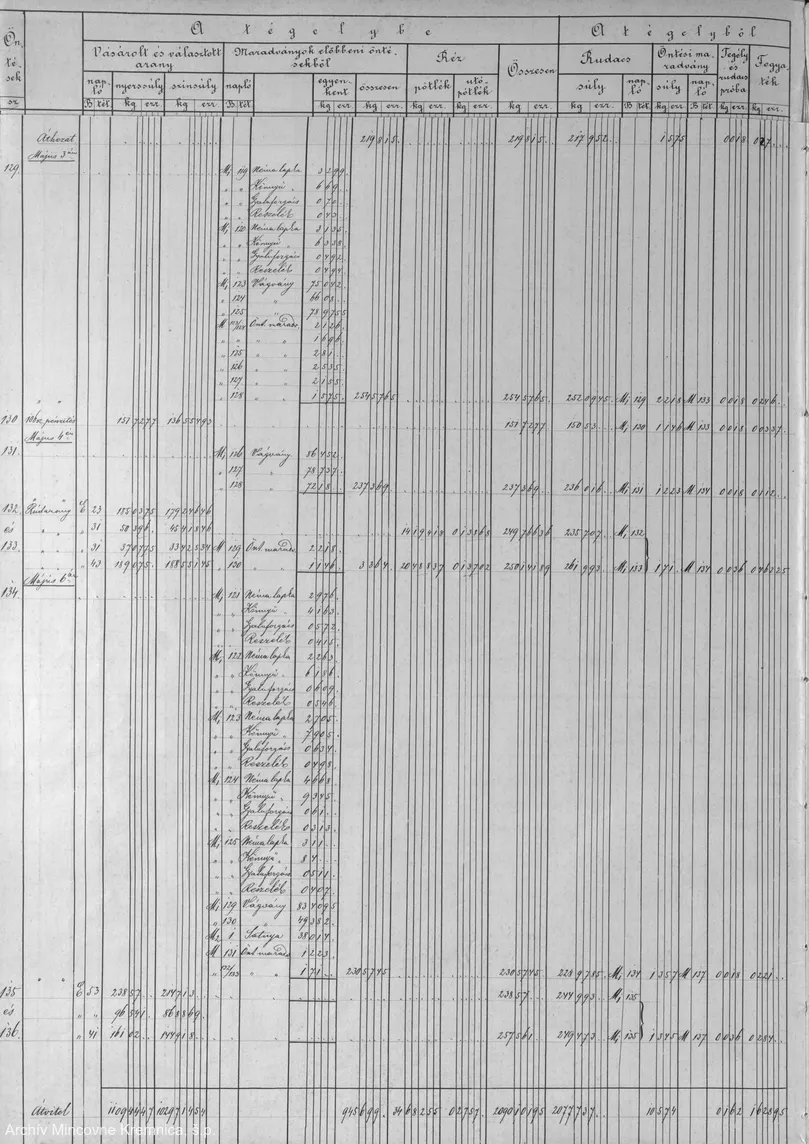 A tégelybe
A tégelyből
Öntések sz.
Vásárolt és választott arany
Maradványok előbbeni öntésekből
Réz
Összesen
Rudacs
Öntési maradvány
Tegély és rudacs próba
Fogyaték
napló nyerssúly szinsúly napló egyenkent összesen pótlék utópótlék súly napló súly napló
B. tét. kg err. kg err. B. tét. kg err. kg err. kg err. kg err. kg err. kg err. B. tét. kg err. B. tét. kg err. kg err.
Áthozat 219 815 219 815 217 952 1 575 0018
Május 3án
129 M1 119 Néma lapka 3 299
" " Könnyű " 6 69
" " Szálaforgács 0 70
" " Reszelék 0 43
M1 120 Néma lapka 3 135
" " Könnyű " 6 338
" " Szálaforgács 0 492
" " Reszelék 0 494
M1 123 Vágvány 75 042
" 124 " 66 08
" 125 " 78 9755
Önt. maradv. 2 126
" " " 1 696
" 125 " " 2 81
" 126 " " 2 535
" 127 " " 2 155
" 128 " " 1 575 254 5765 254 5765 252 0945 M1 129 2 218 M 133 0018 0246
130 151 7277 136 55493 151 7277 150 53 M1 130 1 146 M 133 0018 00337
Május 4én
131 M1 126 Vágvány 86 452
" 127 " 78 737
" 128 " 72 18 237 369 237 369 236 016 M1 131 1 223 M 134 0018 0112
132 Rúdarany E 23 185 0375 179 24646
és " " " 31 50 396 45 41846 14 19418 0 13868 249 76636 235 707 M1 132
133 " " " 31 37 0775 33 42534 M 129 Önt. maradv. 2 218
" " " 43 189 075 188 55145 " 130 " " 1 146 3 364 20 48837 0 13702 250 14189 261 993 M1 133 1 71 M 134 0036 046325
Május 6án
134 M1 121 Néma lapka 2 976
" " Könnyű " 4 163
" " Szálaforgács 0 572
" " Reszelék 0 415
M1 122 Néma lapka 2 263
" " Könnyű " 6 186
" " Szálaforgács 0 609
" " Reszelék 0 546
M1 123 Néma lapka 2 705
" " Könnyű " 7 905
" " Szálaforgács 0 634
" " Reszelék 0 498
M1 124 Néma lapka 4 668
" " Könnyű " 9 345
" " Szálaforgács 0 61
" " Reszelék 0 313
M1 125 Néma lapka 3 11
" " Könnyű " 8 4
" " Szálaforgács 0 511
" " Reszelék 0 407
M1 129 Vágvány 83 4095
" 130 " 49 382
M2 1 38 014
M 131 Önt. maradv. 1 223
" 132/133 " " 1 71 230 5745 230 5745 228 9785 M1 134 1 357 M 137 0018 0221
135 E 53 238 57 214 713 238 57 244 993 M1 135
és " " 96 541 86 8869
136 " 41 161 02 144 918 257 561 249 473 M1 135 1 345 M 137 0036 0284
Átvitel 1109 4447 1029 71454 945 699 34 68255 0 2757 2090 10195 2077 737 10 574 0162 1 62895
Archív Mincovne Kremnica, š.p.